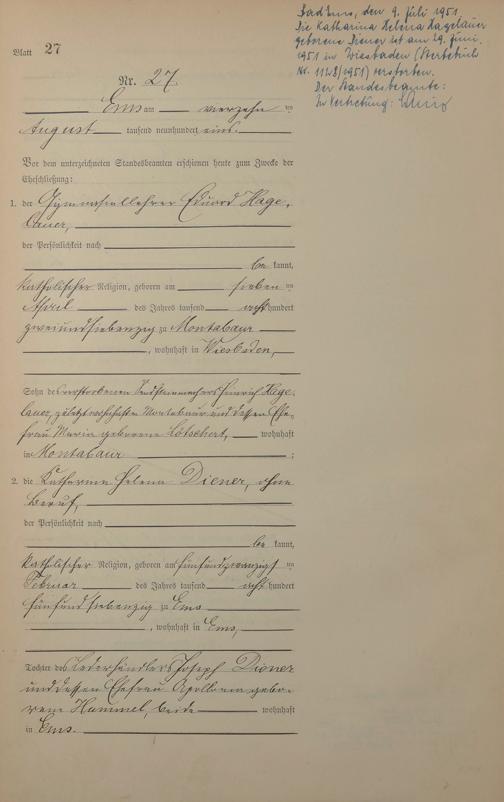 Bad Ems, den 9. Juli 1951
Die Katharina Helena Hagelauer
geborene Diener ist am 29. Juni
1951 in Wiesbaden (Sterbebuch
Nr. 1128/1951) verstorben.
Der Standesbeamte:
In Vertretung:
Blatt 27
Nr. 27.
Ems am vierzehnten
August tausend neunhundert eins.
Vor dem unterzeichneten Standesbeamten erschienen heute zum Zwecke der
Eheschließung:
1. der Gymnasiallehrer Eduard Hage-
lauer,
der Persönlichkeit nach
be kannt,
katholischer Religion, geboren am sieben ten
April des Jahres tausend acht hundert
zweiundsiebenzig zu Montabaur
, wohnhaft in Wiesbaden,
Sohn des verstorbenen Heinrich Hage-
lauer, zuletzt wohnhaft Montabaur und dessen Ehe-
frau Maria geborene Lötschert, wohnhaft
in Montabaur ;
2. die Katharina Helena Diener, ohne
Beruf,
der Persönlichkeit nach
be kannt,
katholischer Religion, geboren am fünfundzwanzigsten
Februar des Jahres tausend acht hundert
fünfundsiebenzig zu Ems
, wohnhaft in Ems,
Tochter des Lederhändlers Joseph Diener
und dessen Ehefrau gebo-
rene Hummel, beide wohnhaft
in Ems.